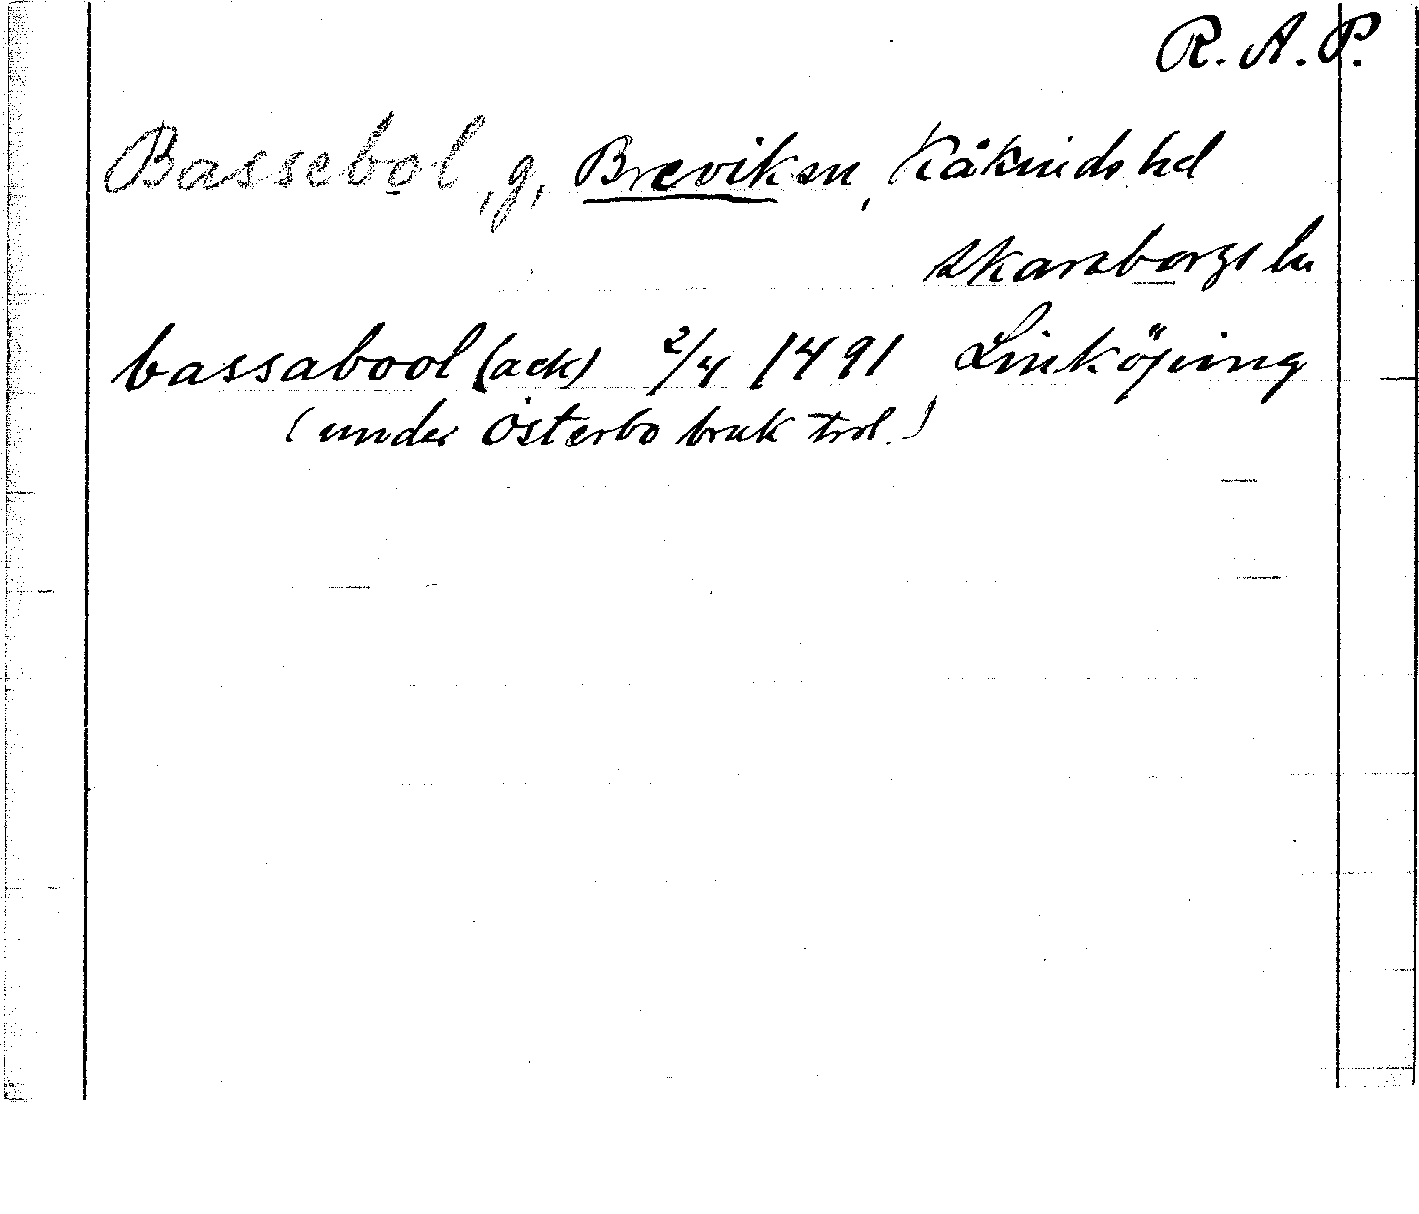 R.A.P.
Bassebol, g, Breviksn, Kåkinds hd
Skaraborgs ln
bassabool (ack) 2/4 1491 Linköping
(under Österbo bruk trol.)